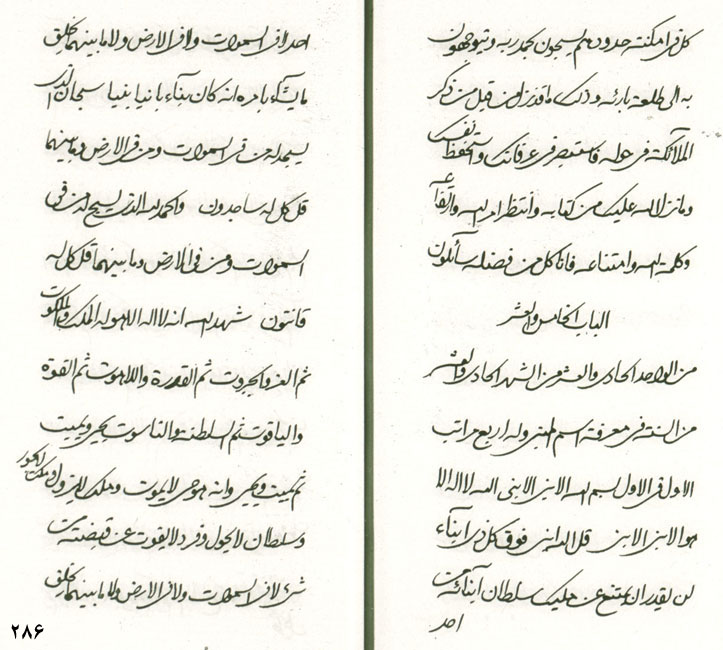 كل في امكنته حدودهم يسبحون بحمد ربه و يتوجهون
به الى طلعة بارئه و ذلك ما قد نزل من قبل من ذكر
الملآئكة في حوله فاستبصر في عرفانك و استحفظ نفسك
و ما نزل الله عليك من كتابه و انتظر امر الله و ارتفاع
و كلمة الله و امتناعه فانا كل من فضله سآئلون
الباب الخامس و العشر
من الواحد الحادي و العشر من الشهر الحادي و العشر
من السنة في معرفة اسم وله اربع مراتب
الاول في الاول بسم الله الابنى الابنى الله لا اله الا
هو الابنى الابنى قل الله ابنى فوق كل ذي ابنآء
لن يقدر ان يمتنع عن مليك سلطان ابنآئه من
احد
احد لا في السموات و لا في الارض و لا ما بينهما يخلق
ما يشآء بامره انه كان بنآء بانيا بنيا سبحان الذي
يسجد له من في السموات و من في الارض و ما بينهما
قل كل له ساجدون و الحمد لله الذي يسبح له من في
السموات و من في الارض و ما بينهما قل كل له
قانتون شهد الله انه لا اله الا هو له الملك و الملكوت
ثم العز و الجبروت ثم القدرة و اللاهوت ثم القوة
و الياقوت ثم السلطنة و الناسوت يحيي و يميت
ثم يميت و يحيي و انه هو حي لا يموت و ملك لا يزول و عدل لا يجور
و سلطان لا يحول و فرد لا يفوت عن قبضته من
شيء لا في السموات و لا في الارض و لا ما بينهما يخلق
٢٨۶